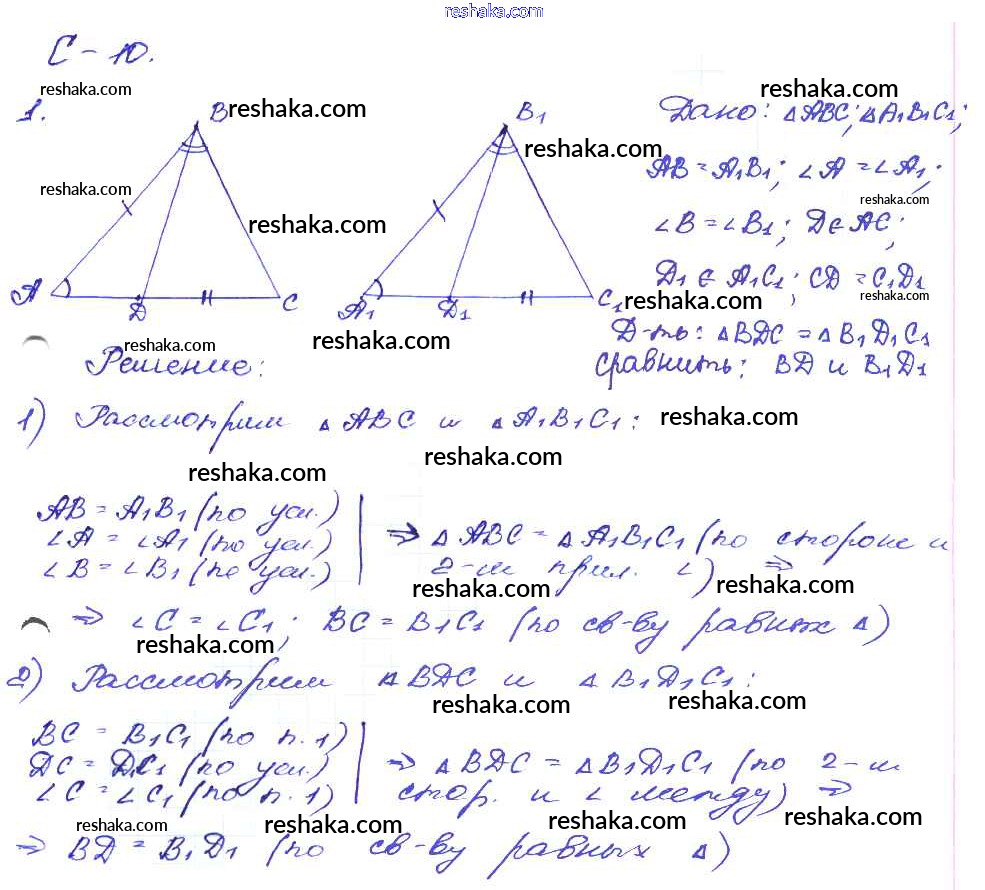 reshaka.com
С-10.
reshaka.com
reshaka.com
reshaka.com
1.
B
B1
Дано: △ABC; △A1B1C1;
reshaka.com
AB = A1B1; ∠A = ∠A1;
reshaka.com
reshaka.com
reshaka.com
∠B = ∠B1; D∈AC;
A D C
A1 D1 C1
D1 ∈ A1C1; CD = C1D1
reshaka.com
reshaka.com
reshaka.com
Д-ть: △BDC = △B1D1C1
reshaka.com
Решение:
сравнить: BD и B1D1
1) Рассмотрим △ABC и △A1B1C1:
reshaka.com
reshaka.com
reshaka.com
AB = A1B1 (по усл.)
∠A = ∠A1 (по усл.)
∠B = ∠B1 (по усл.)
⇒ △ABC = △A1B1C1 (по стороне и
2-м прил. ∠) ⇒
reshaka.com
reshaka.com
⇒ ∠C = ∠C1; BC = B1C1 (по св-ву равных △)
reshaka.com
2) Рассмотрим △BDC и △B1D1C1:
reshaka.com
reshaka.com
BC = B1C1 (по п.1)
DC = D1C1 (по усл.)
∠C = ∠C1 (по п.1)
⇒ △BDC = △B1D1C1 (по 2-м
стор. и ∠ между) ⇒
reshaka.com
reshaka.com
reshaka.com
reshaka.com
⇒ BD = B1D1 (по св-ву равных △)